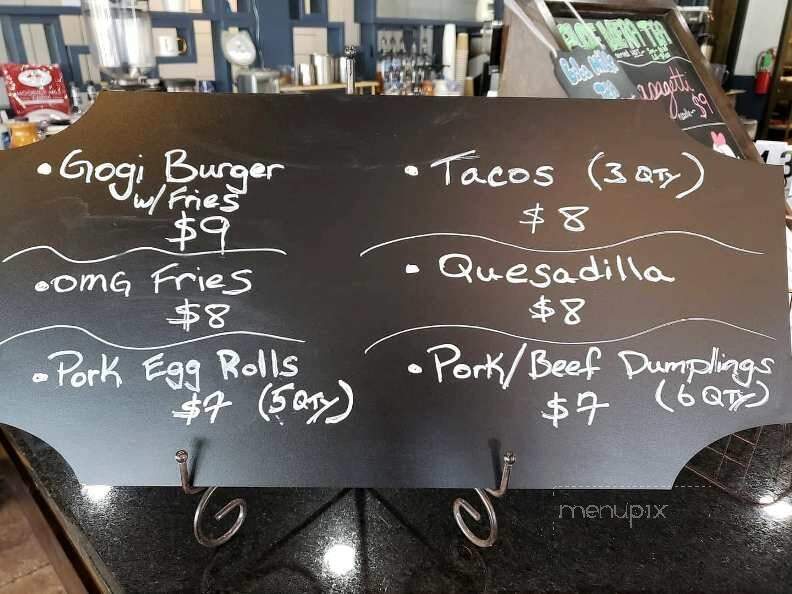 • Gogi Burger
w/ Fries
$9
• OMG Fries
$8
• Pork Egg Rolls
$7 (5 QTY)
• Tacos (3 QTY)
$8
• Quesadilla
$8
• Pork/Beef Dumplings
$7 (6 QTY)
$9
menupix